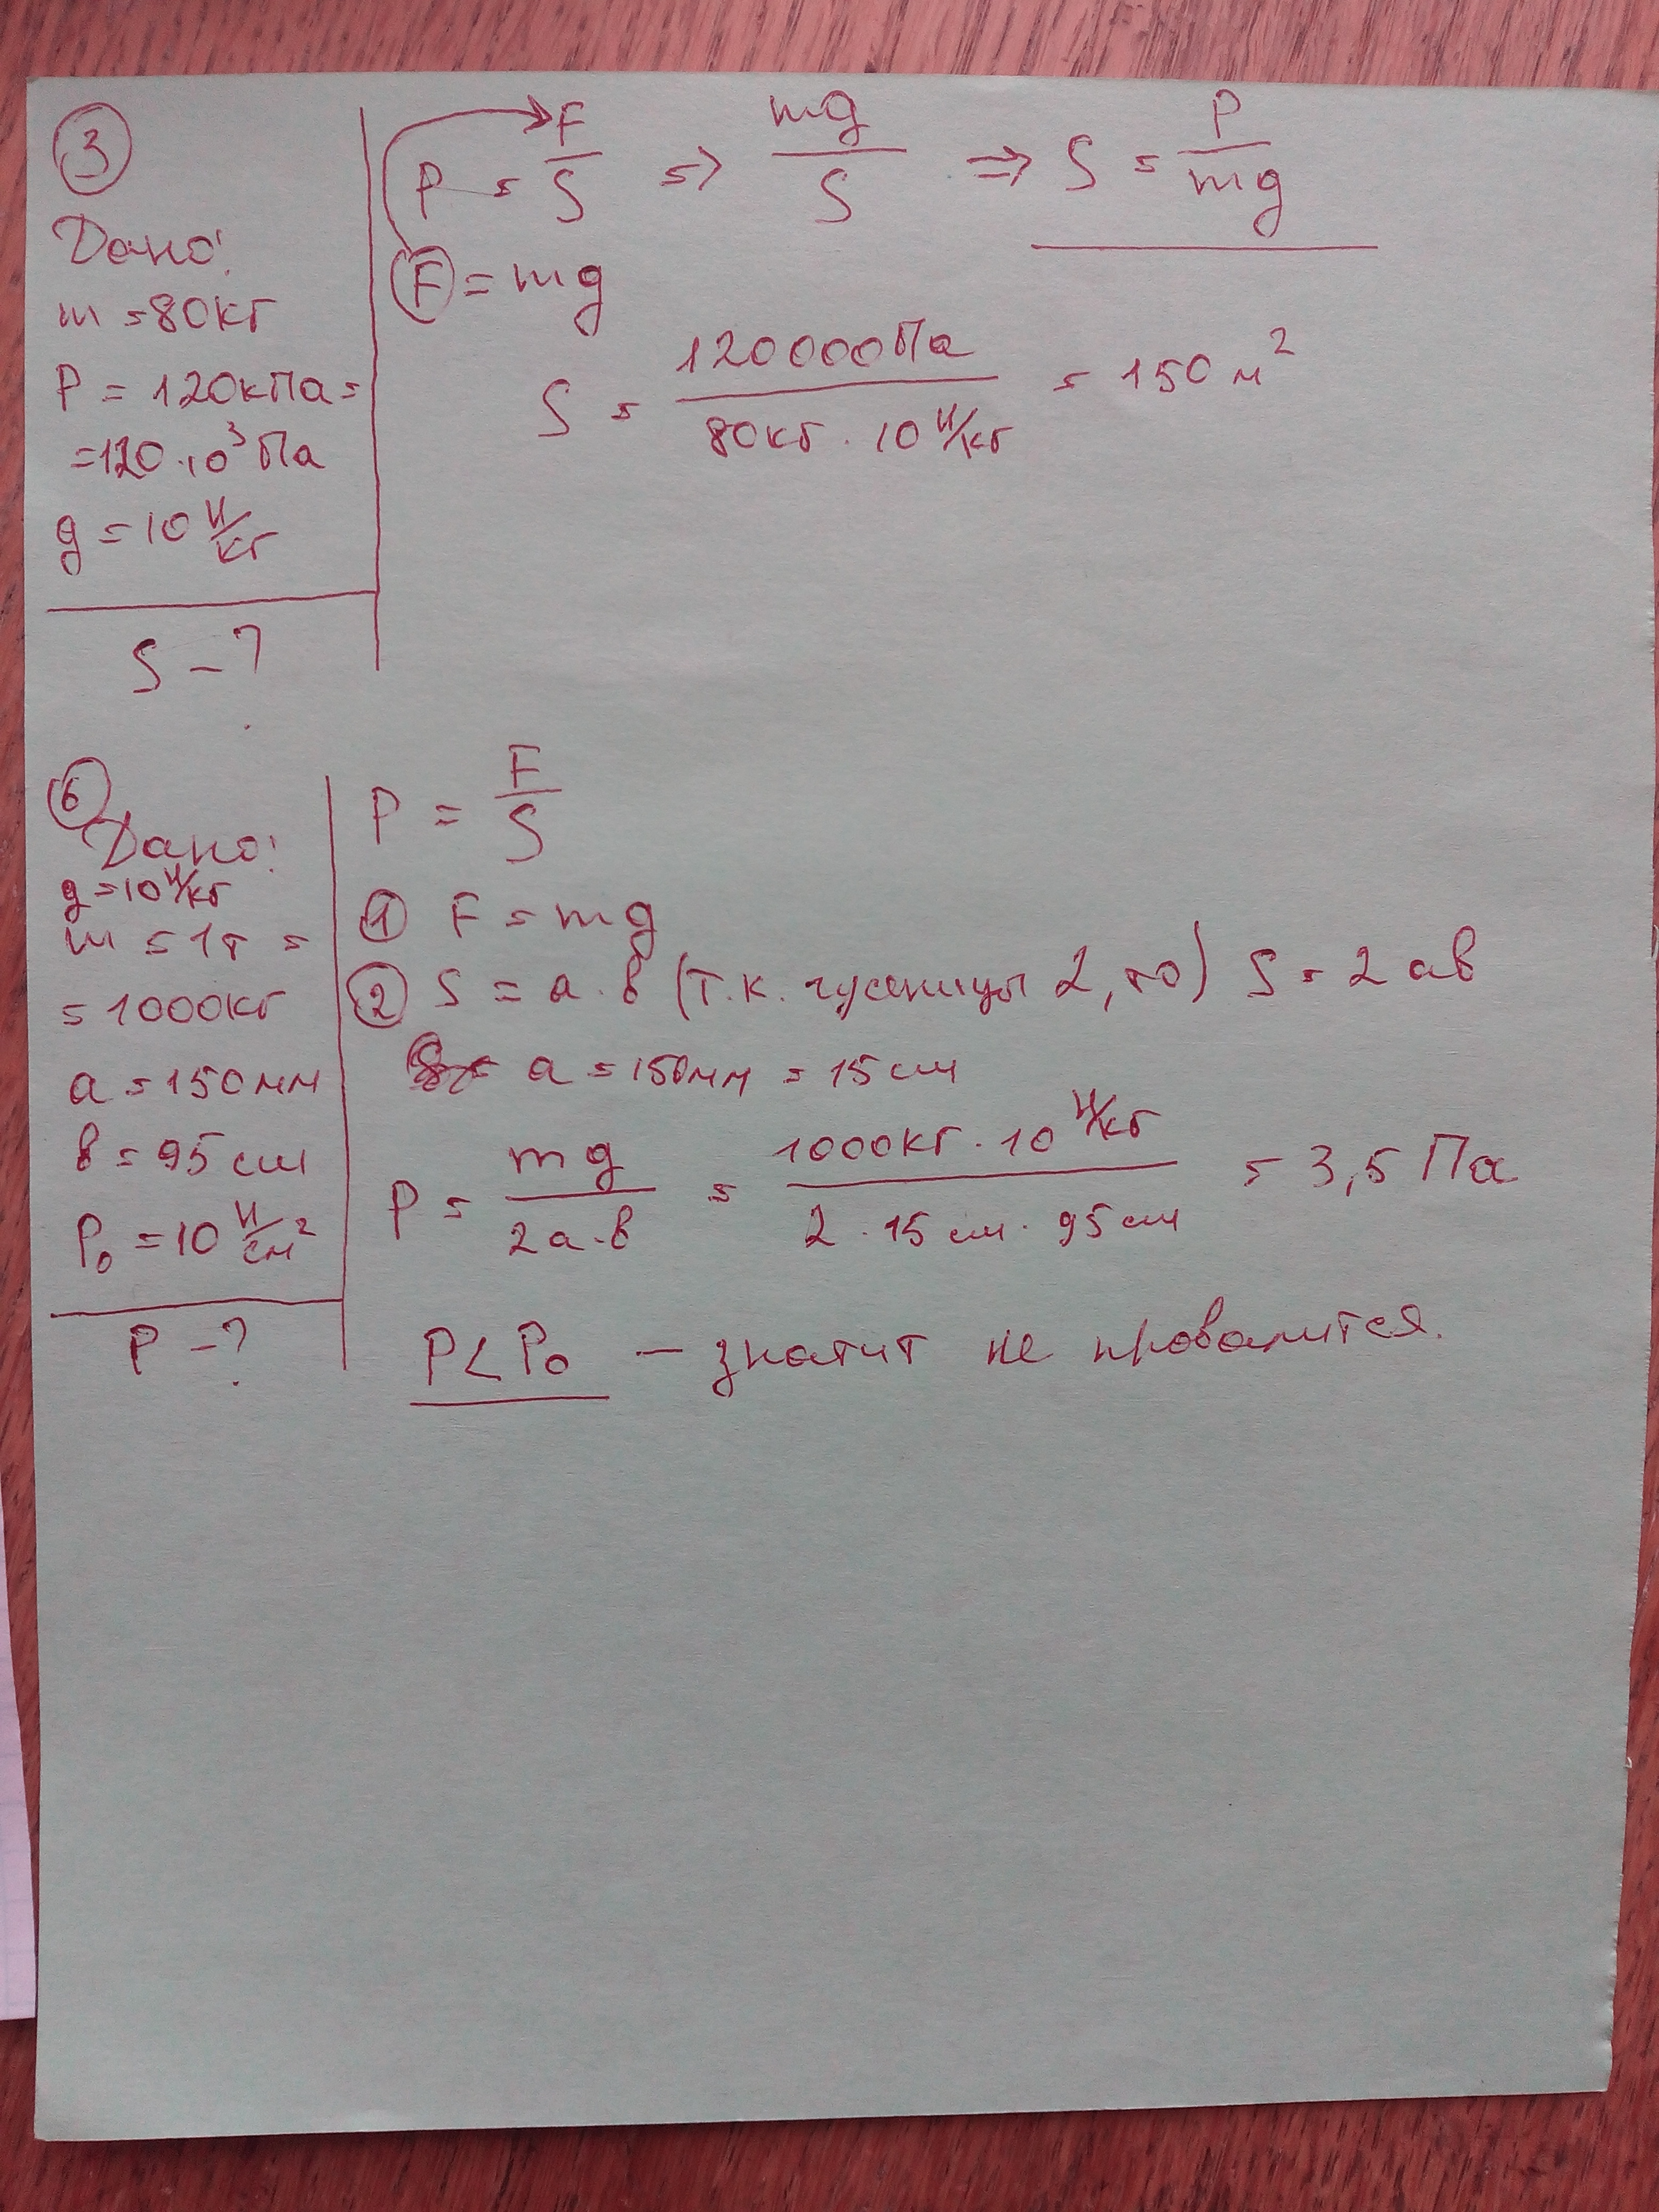 3
Дано:
m = 80кг
P = 120кПа =
= 120 · 10³ Па
g = 10 Н/кг
S – ?
P = F/S => mg/S => S = P/mg
F = mg
S = 120000Па / 80кг · 10 Н/кг = 150 м²
6
Дано:
g = 10 Н/кг
m = 1т =
= 1000кг
a = 150мм
в = 95 см
P₀ = 10 Н/см²
P – ?
P = F/S
1 F = mg
2 S = a · в (т.к. гусеницы 2, то) S = 2 ав
a = 150мм = 15 см
P = mg / 2а · в = 1000кг · 10 Н/кг / 2 · 15 см · 95 см = 3,5 Па
P < P₀ — значит не провалится.